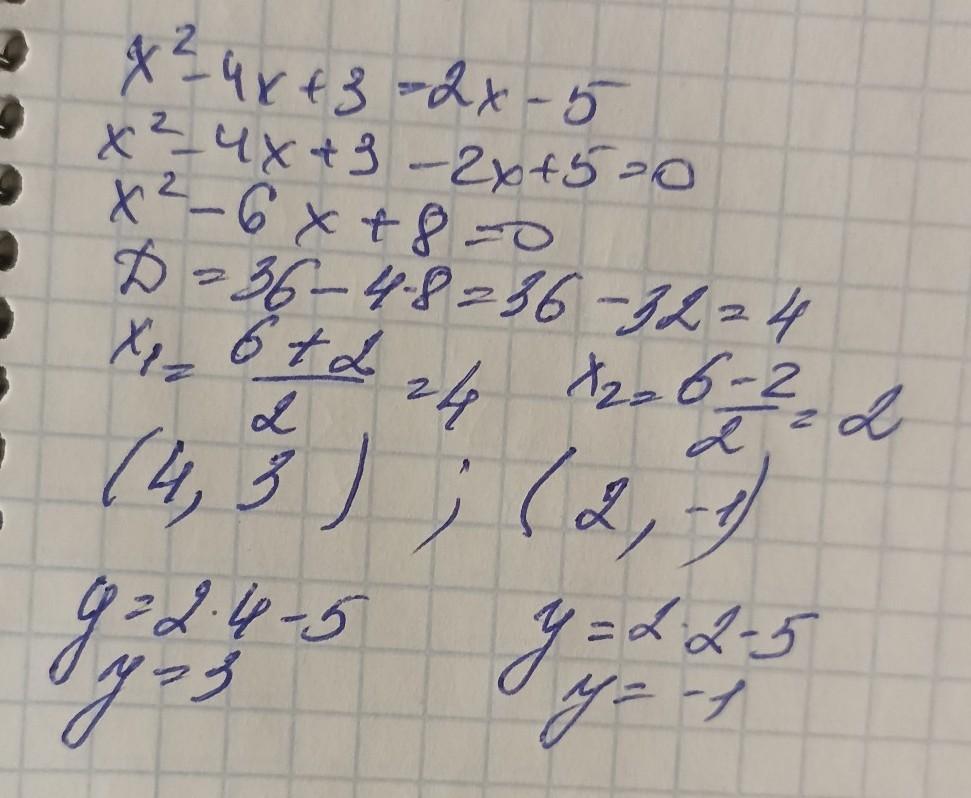 x² - 4x + 3 = 2x - 5
x² - 4x + 3 - 2x + 5 = 0
x² - 6x + 8 = 0
D = 36 - 4·8 = 36 - 32 = 4
x₁ = (6 + 2)/2 = 4    x₂ = (6 - 2)/2 = 2
(4, 3) ; (2, -1)
y = 2·4 - 5    y = 2·2 - 5
y = 3    y = -1